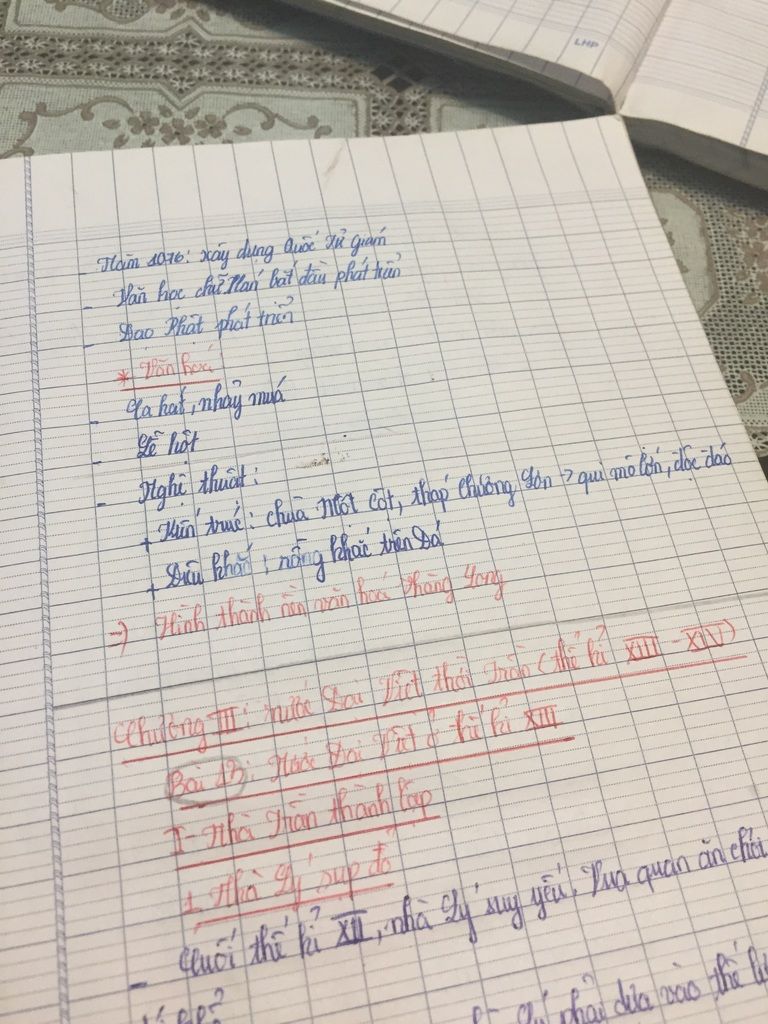 LHP
- Năm 1076: xây dựng Quốc tử giám
- Văn học chữ Hán bắt đầu phát triển
- Đạo Phật phát triển
* Văn hoá
- Ca hát, nhảy múa
- Lễ hội
- Nghệ thuật:
+ Kiến trúc: chùa Một Cột, tháp Chương Sơn -> qui mô lớn, độc đáo
+ Điêu khắc: rồng khắc trên Đá
=> Hình thành nền văn hoá Thăng Long
Chương III: nước Đại Việt thời Trần (thế kỉ XIII - XIV)
Bài 13: Nước Đại Việt ở thế kỉ XIII
I- Nhà Trần thành lập
1. Nhà Lý sụp đổ
- Cuối thế kỉ XII, nhà Lý suy yếu. Vua quan ăn chơi
Lý phải dựa vào thế lực